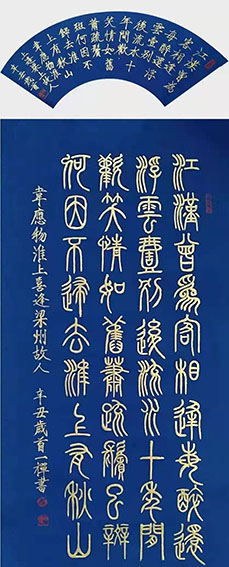 江漢曾為
客相逢
每醉還浮
雲壹別
後流水十
年間歡
笑情如舊
蕭疏鬢已
斑何因不
歸去淮
上有秋山
韋應物淮
上喜逢梁州故人
江漢曾爲客相逢每醉還
浮雲壹別後流水十年間
歡笑情如舊蕭疏鬢已辬
何因不歸去淮上有秋山
韋應物淮上喜逢梁州故人 辛丑歲首一禪書